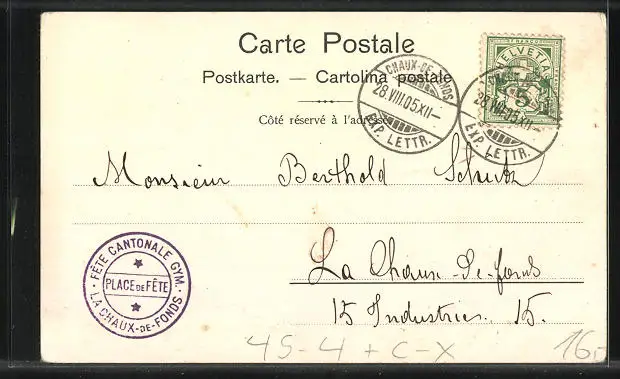 Carte Postale
Postkarte. — Cartolina postale
Côté réservé à l'adresse
CHAUX-DE-FONDS
28.VIII.05.XII—
EXP. LETTR.
FRANCO
HELVETIA
5
28.VIII.05.XII—
EXP. LETTR.
Monsieur Berthold Schutz
FÊTE CANTONALE GYM.
PLACE DE FÊTE
LA CHAUX-DE-FONDS
La Chaux-de-fonds
15 Industries. 15.
4S-4+C-X
16,-